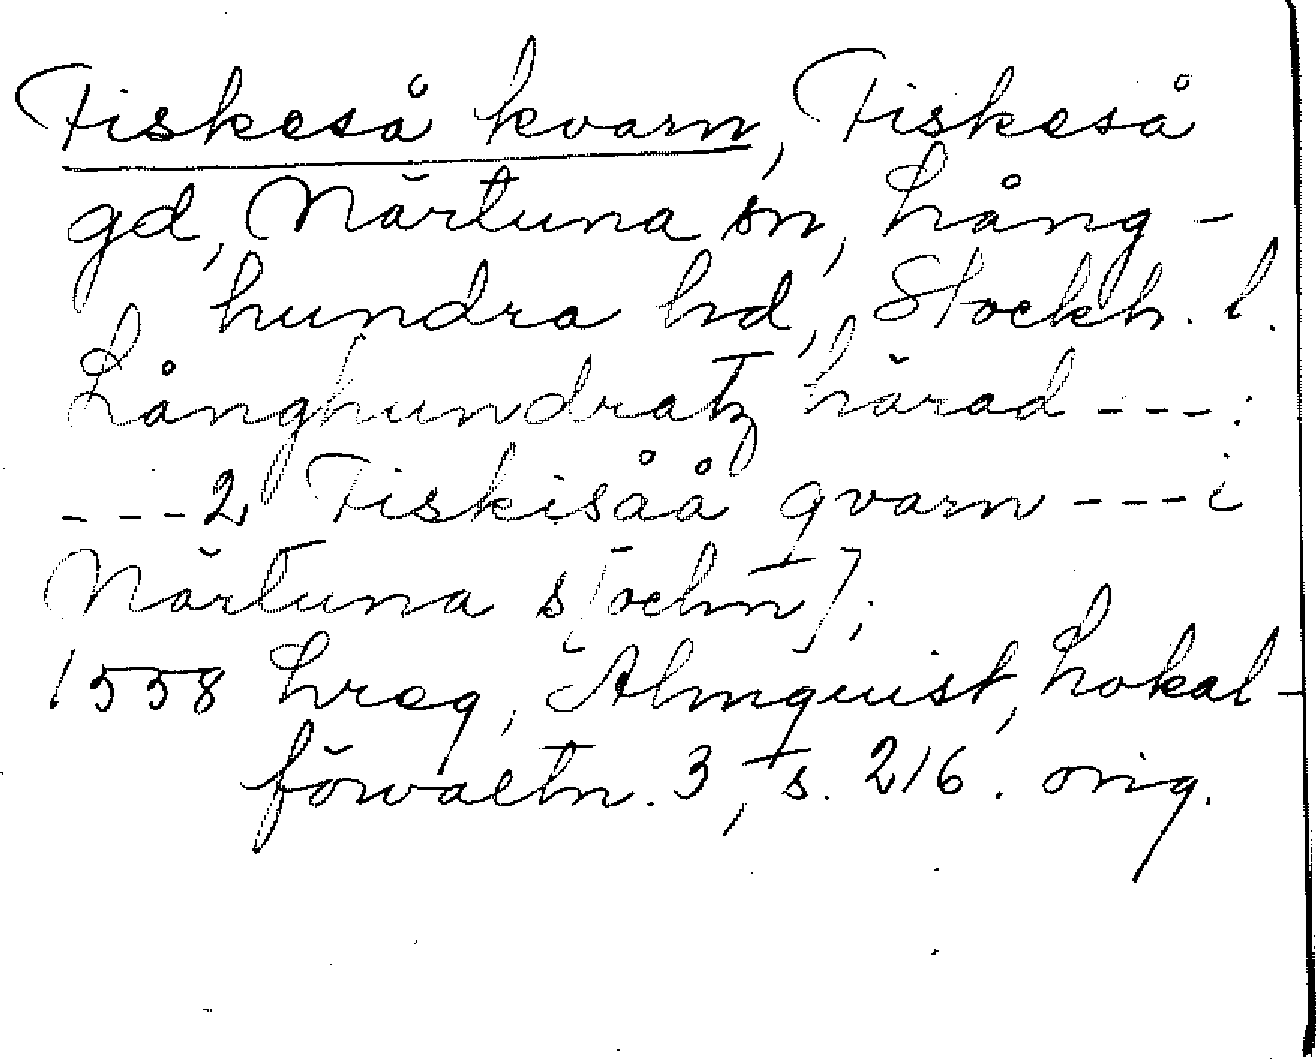 Fiskeså kvarn, Fiskeså
gd, Närtuna sn, Lång-
hundra hd, Stockh. l.
Långhundratz härad ---:
---2 Fiskisåå qvarn ---i
Närtuna s[ochn];
1558 Lreg, Almquist, Lokal-
förvaltn. 3, s. 216. orig.